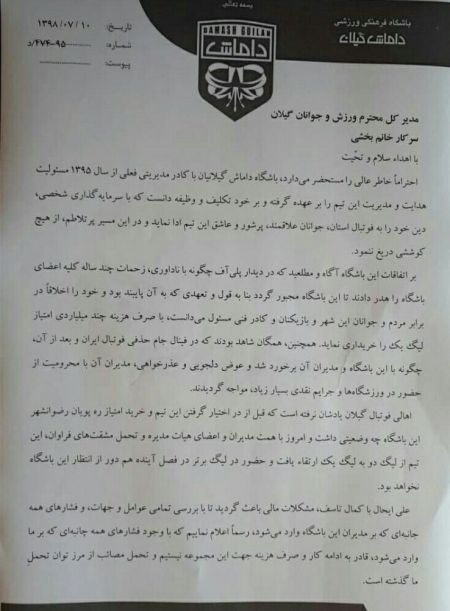 بسمه تعالی
باشگاه فرهنگی ورزشی
داماش گیلان
DAMASH GUILAN
داماش
تاریخ: ۱۳۹۸/۰۷/۱۰
شماره: ۹۵-۴۷۴/د
پیوست:
مدیر کل محترم ورزش و جوانان گیلان
سرکار خانم بخشی
با اهداء سلام و تحیّت
احتراماً خاطر عالی را مستحضر می‌دارد، باشگاه داماش گیلانیان با کادر مدیریتی فعلی از سال ۱۳۹۵ مسئولیت
هدایت و مدیریت این تیم را بر عهده گرفته و بر خود تکلیف و وظیفه دانست که با سرمایه‌گذاری شخصی،
دین خود را به فوتبال استان، جوانان علاقمند، پرشور و عاشق این تیم ادا نماید و در این مسیر پرتلاطم، از هیچ
کوششی دریغ ننمود.
بر اتفاقات این باشگاه آگاه و مطلعید که در دیدار پلی‌آف چگونه با ناداوری، زحمات چند ساله کلیه اعضای
باشگاه را هدر دادند تا این باشگاه مجبور گردد بنا به قول و تعهدی که به آن پایبند بود و خود را اخلاقاً در
برابر مردم و جوانان این شهر و بازیکنان و کادر فنی مسئول می‌دانست، با صرف هزینه چند میلیاردی امتیاز
لیگ یک را خریداری نماید. همچنین، همگان شاهد بودند که در فینال جام حذفی فوتبال ایران و بعد از آن،
چگونه با این باشگاه و مدیران آن برخورد شد و عوض دلجویی و عذرخواهی، مدیران آن با محرومیت از
حضور در ورزشگاه‌ها و جرایم نقدی بسیار زیاد، مواجه گردیدند.
اهالی فوتبال گیلان یادشان نرفته است که قبل از در اختیار گرفتن این تیم و خرید امتیاز ره پویان رضوانشهر
این باشگاه چه وضعیتی داشت و امروز با همت مدیران و اعضای هیات مدیره و تحمل مشقت‌های فراوان، این
تیم از لیگ دو به لیگ یک ارتقاء یافت و حضور در لیگ برتر در فصل آینده هم دور از انتظار این باشگاه
نخواهد بود.
علی ایحال با کمال تاسف، مشکلات مالی باعث گردید تا با بررسی تمامی عوامل و جهات، و فشارهای همه
جانبه‌ای که بر مدیران این باشگاه وارد می‌شود، رسماً اعلام نماییم که با وجود فشارهای همه جانبه‌ای که بر ما
وارد می‌شود، قادر به ادامه کار و صرف هزینه جهت این مجموعه نیستیم و تحمل مصائب از مرز توان تحمل
ما گذشته است.